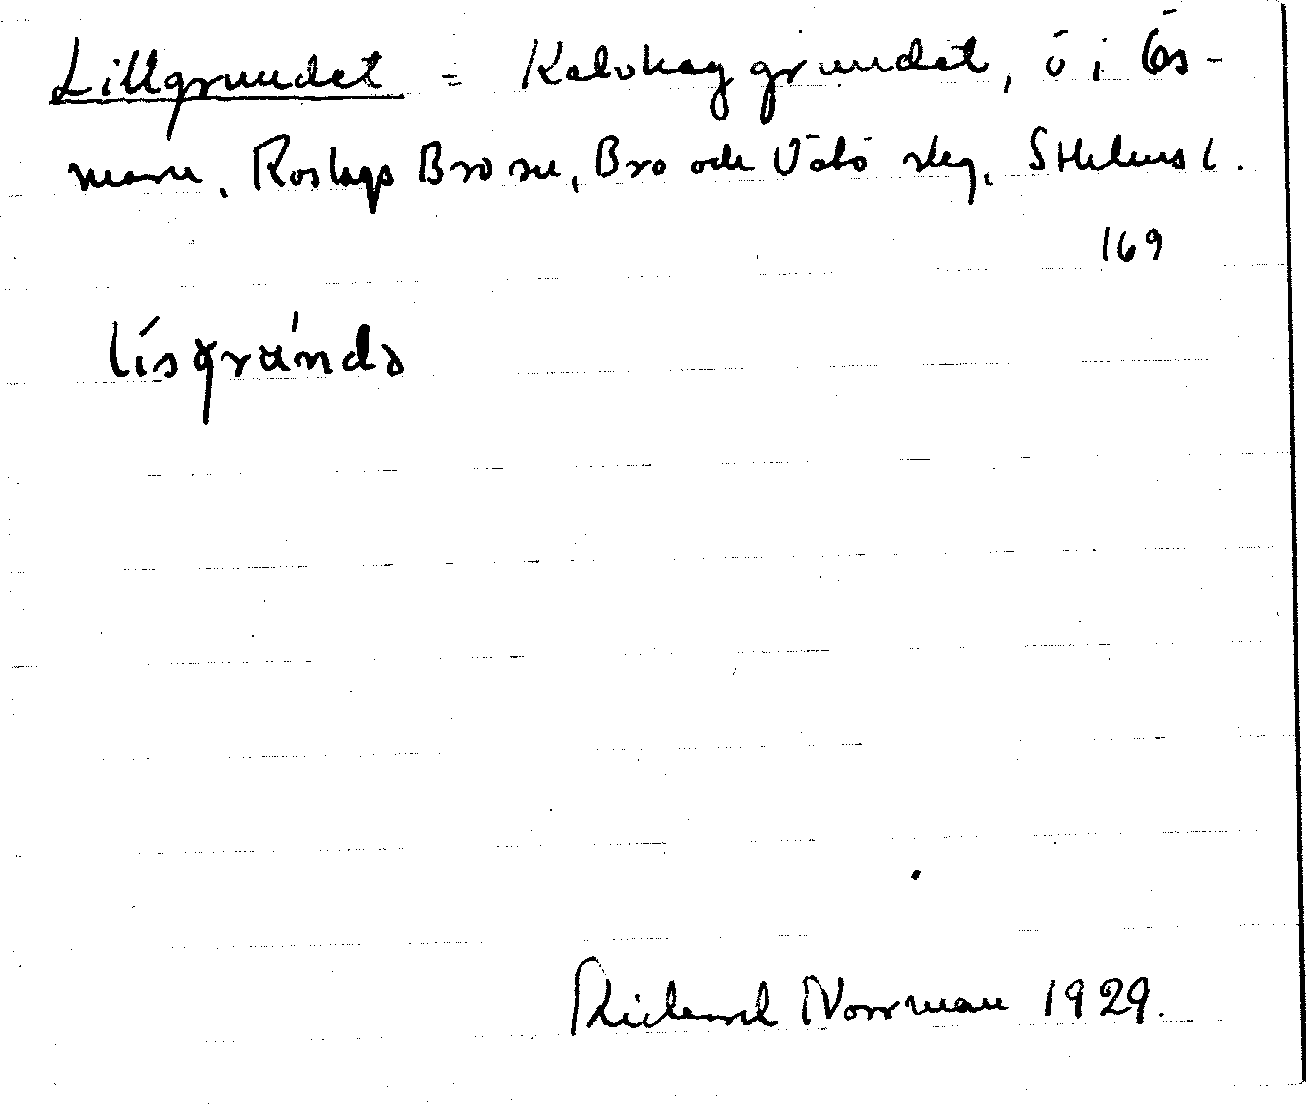 Lillgrundet = Kalvhaggrundet, ö i Ös-
maren, Roslags Bro sn, Bro och Vätö skg, Sthlms l.
169
Richard Norrman 1929.